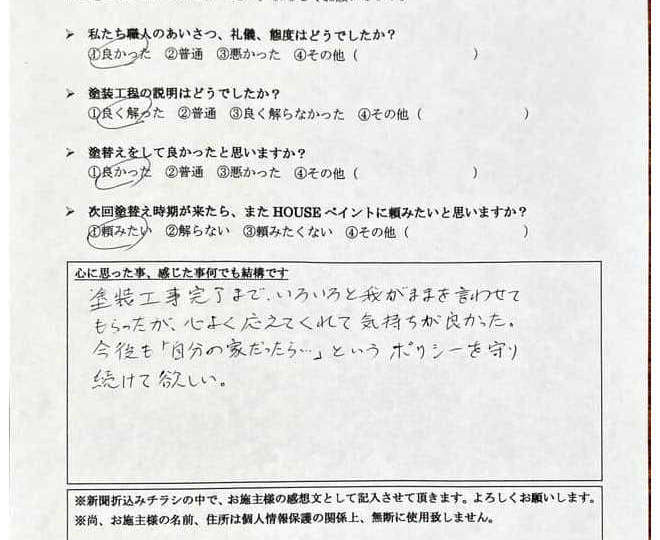 ➢ 私たち職人のあいさつ、礼儀、態度はどうでしたか？
①良かった ②普通 ③悪かった ④その他（ ）
➢ 塗装工程の説明はどうでしたか？
①良く解った ②普通 ③良く解らなかった ④その他（ ）
➢ 塗替えをして良かったと思いますか？
①良かった ②普通 ③悪かった ④その他（ ）
➢ 次回塗替え時期が来たら、また HOUSE ペイントに頼みたいと思いますか？
①頼みたい ②解らない ③頼みたくない ④その他（ ）
心に思った事、感じた事何でも結構です
塗装工事完了まで、いろいろと我がままを言わせて
もらったが、心よく応えてくれて気持ちが良かった。
今後も「自分の家だったら…」というポリシーを守り
続けて欲しい。
※新聞折込みチラシの中で、お施主様の感想文として記入させて頂きます。よろしくお願いします。
※尚、お施主様の名前、住所は個人情報保護の関係上、無断に使用致しません。